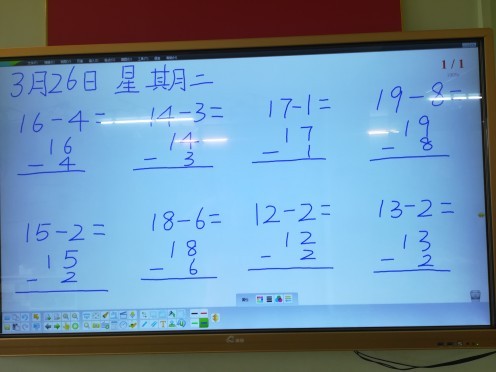 3月26日 星期二
1/1
16-4= 14-3= 17-1= 19-8=
16 14 17 19
-4 -3 -1 -8
15-2= 18-6= 12-2= 13-2=
15 18 12 13
-2 -6 -2 -2